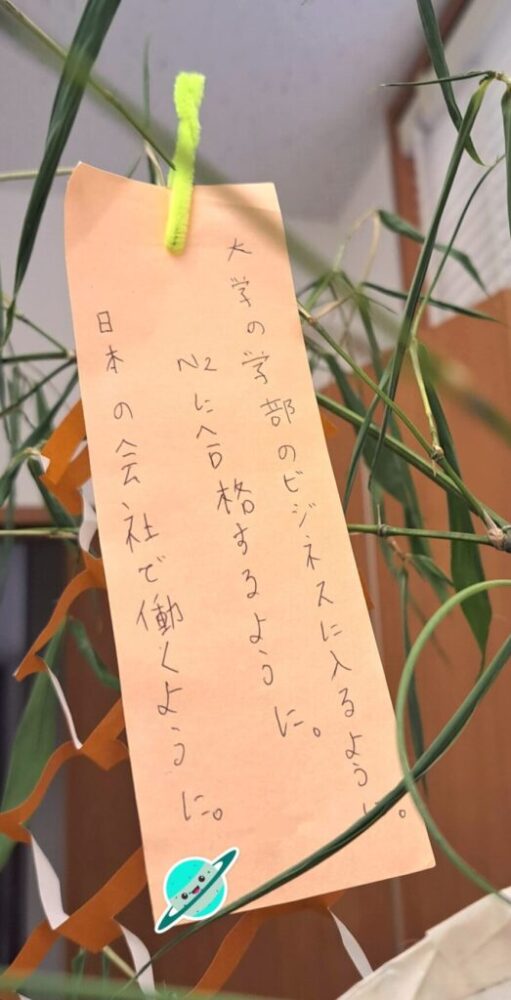 大学の学部のビジネスに入るように。
N2に合格するように。
日本の会社で働くように。